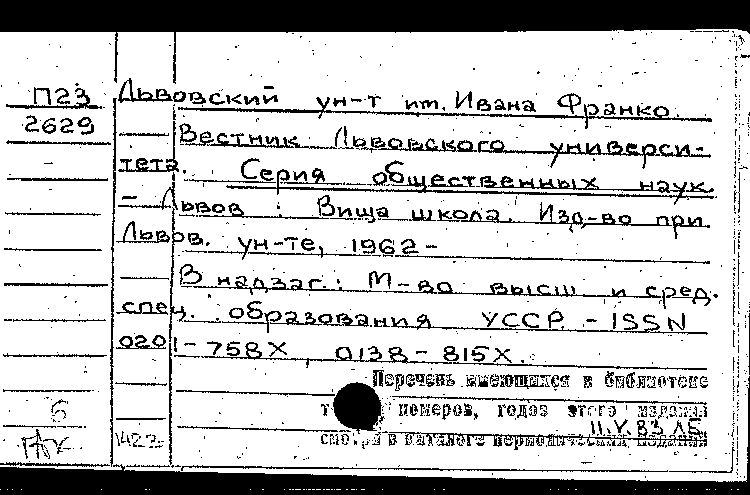 П23 Львовский ун-т им. Ивана Франко.
2629 Вестник Львовского универси-
тета. Серия общественных наук.
- Львов : Вища школа. Изд-во при
Львов. ун-те, 1962 -
В надзаг.: М-во высш и сред.
спец. образования УССР. - ISSN
0201-758X, 0138-815X.
Перечень имеющихся в библиотеке
номеров, годов этого издания
11.V.83 ЛБ
смотри в каталоге периодических изданий
6
1422